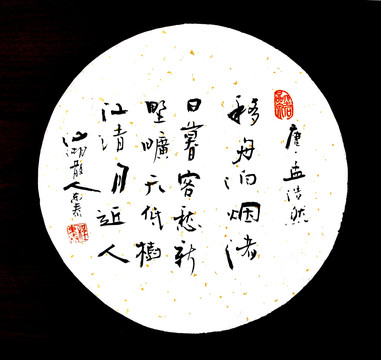 唐·孟浩然
移舟泊烟渚
日暮客愁新
野曠天低樹
江清月近人
江湖散人